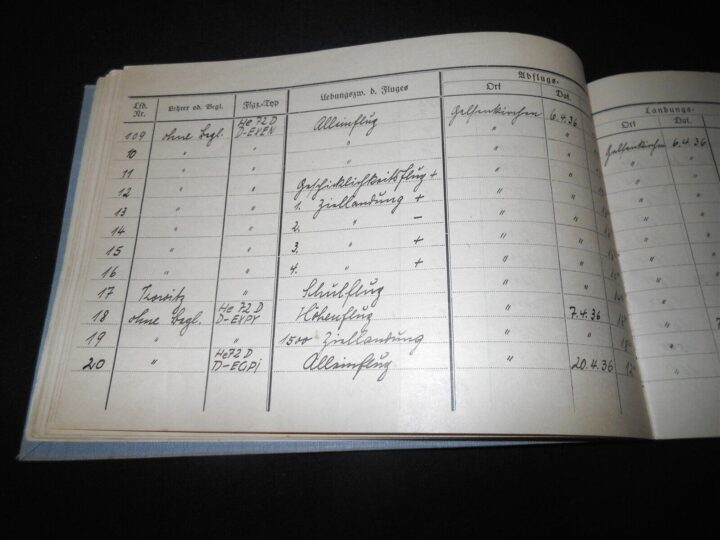 Abflugs- Landungs-
Lfd. Nr. Lehrer od. Begl. Flgz.-Typ Uebungszw. d. Fluges Ort Dat. Ort Dat.
109 ohne Begl. He 72 D D-EVEN Alleinflug Gelsenkirchen 6.4.36 Gelsenkirchen 6.4.36
10 " " " " " " "
11 " " " " " " "
12 " " Geschicklichkeitsflug + " " " "
13 " " 1. Ziellandung + " " " "
14 " " 2. " - " " " "
15 " " 3. " + " " " "
16 " " 4. " + " " " "
17 " Schulflug " " "
18 ohne Begl. He 72 D Höhenflug " 7.4.36 "
19 " " 1500 Ziellandung " " "
20 " He 72 D D-EGPI Alleinflug " 20.4.36 "